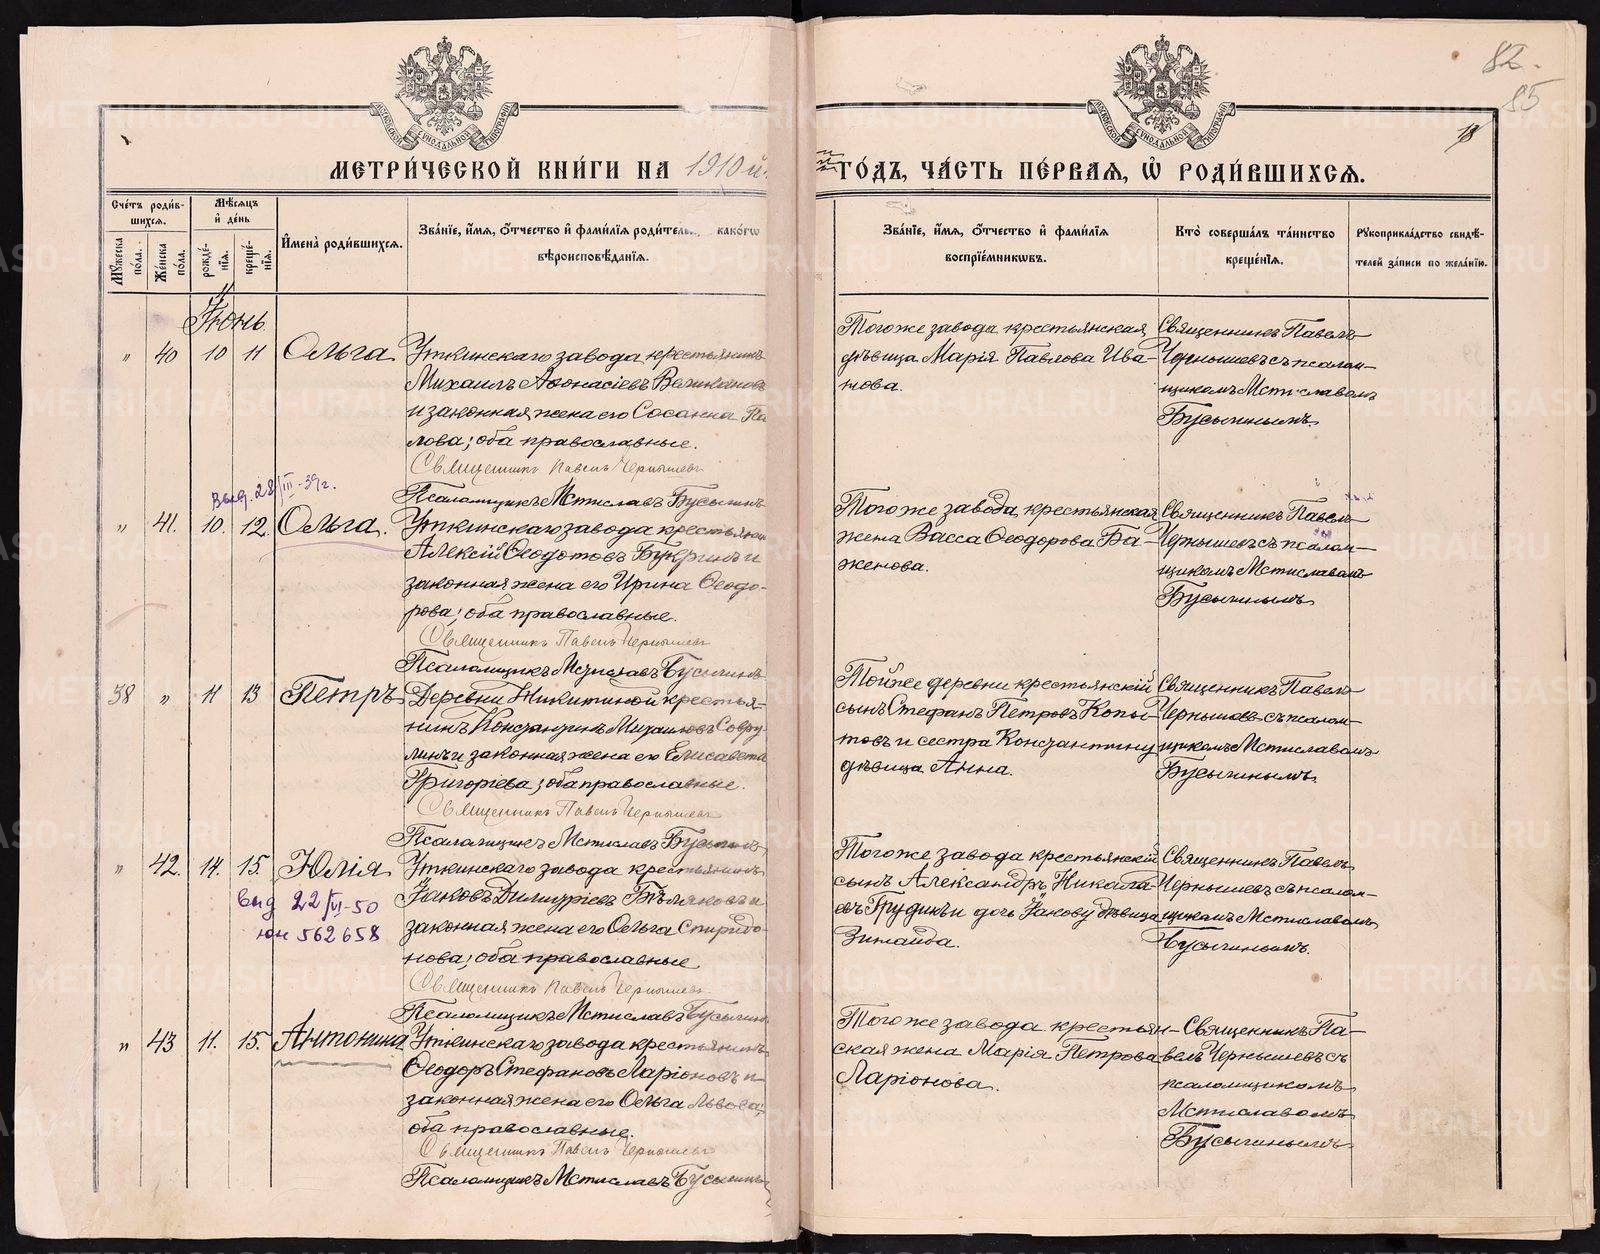 82.
85
МЕТРИ́ЧЕСКОЙ КНИ́ГИ НА 1910 й
ГО́ДЪ, ЧА́СТЬ ПЕ́РВАѦ, Ѽ РОДИ́ВШИХСѦ.
Сче́тъ роди́в-
шихсѧ.
Мꙋ́жеска по́ла.
Же́нска по́ла.
Мѣ́сѧцъ и де́нь
рожде́-
нїѧ.
креще́-
нїѧ.
И҆мена̀ роди́вшихсѧ.
Зва́нїе, и҆́мѧ, ѻ҆́тчество и҆ фами́лїѧ родител како́гѡ
вѣроисповѣ́данїѧ.
Зва́нїе, и҆́мѧ, ѻ҆́тчество и҆ фами́лїѧ
воспрїе́мникѡвъ.
Кто̀ соверша́лъ та́инство
креще́нїѧ.
Рꙋкоприкла́дство свидѣ́-
телей за́писи по жела́нїю.
Іюнь
" 40 10 11 Ольга
Уткинскаго завода крестьянинъ
Михаилъ Аѳонасіевъ Великановъ
и законная жена его Сосанна Па
лова; оба православные.
Священникъ Павелъ Чернышевъ
Псаломщикъ Мстиславъ Бусыгинъ
Тогоже завода крестьянская
дѣвица Марія Павлова Ива-
нова.
Священникъ Павелъ
Чернышевъ съ псалом-
щикомъ Мстиславомъ
Бусыгинымъ.
Выд. 28/III-39г.
" 41. 10. 12. Ольга.
Уткинскаго завода крестьянин
Алексій Ѳеодотовъ Букринъ и
законная жена его Ирина Ѳеодо-
рова; оба православные.
Священникъ Павелъ Чернышевъ
Псаломщикъ Мстиславъ Бусыгинъ
Тогоже завода крестьянская
жена Васса Ѳеодорова Ба-
женова.
Священникъ Павелъ
Чернышевъ съ псалом-
щикомъ Мстиславомъ
Бусыгинымъ
38 " 11 13 Петръ
Деревни Никитиной крестья-
нинъ Константинъ Михаиловъ
и законная жена его Елисавета
Григоріева; оба православные.
Священникъ Павелъ Чернышевъ
Псаломщикъ Мстиславъ Бусыгинъ
Той же деревни крестьянскій
сынъ Стефанъ Петровъ Копы-
товъ и сестра Константину
дѣвица Анна.
Священникъ Павелъ
Чернышевъ съ псалом-
щикомъ Мстиславомъ
Бусыгинымъ.
" 42. 14. 15. Юлія
Выд 22/VI-50
юн 562658
Уткинскаго завода крестьянинъ
Іаковъ Димитріевъ Бѣляковъ и
законная жена его Ольга Спиридо-
нова; оба православные
Священникъ Павелъ Чернышевъ
Псаломщикъ Мстиславъ Бусыгинъ
Тогоже завода крестьянскій
сынъ Александръ Никола-
евъ Грудинъ и дочь Іакову дѣвица
Зинаида.
Священникъ Павелъ
Чернышевъ съ псалом-
щикомъ Мстиславомъ
Бусыгинымъ.
" 43 11. 15. Антонина
Уткинскаго завода крестьянинъ
Ѳеодоръ Стефановъ Ларіоновъ и
законная жена его Ольга Львова;
оба православные.
Священникъ Павелъ Чернышевъ
Псаломщикъ Мстиславъ Бусыгинъ
Тогоже завода крестьян-
ская жена Марія Петрова
Ларіонова.
Священникъ Па-
велъ Чернышевъ съ
псаломщикомъ
Мстиславомъ
Бусыгинымъ